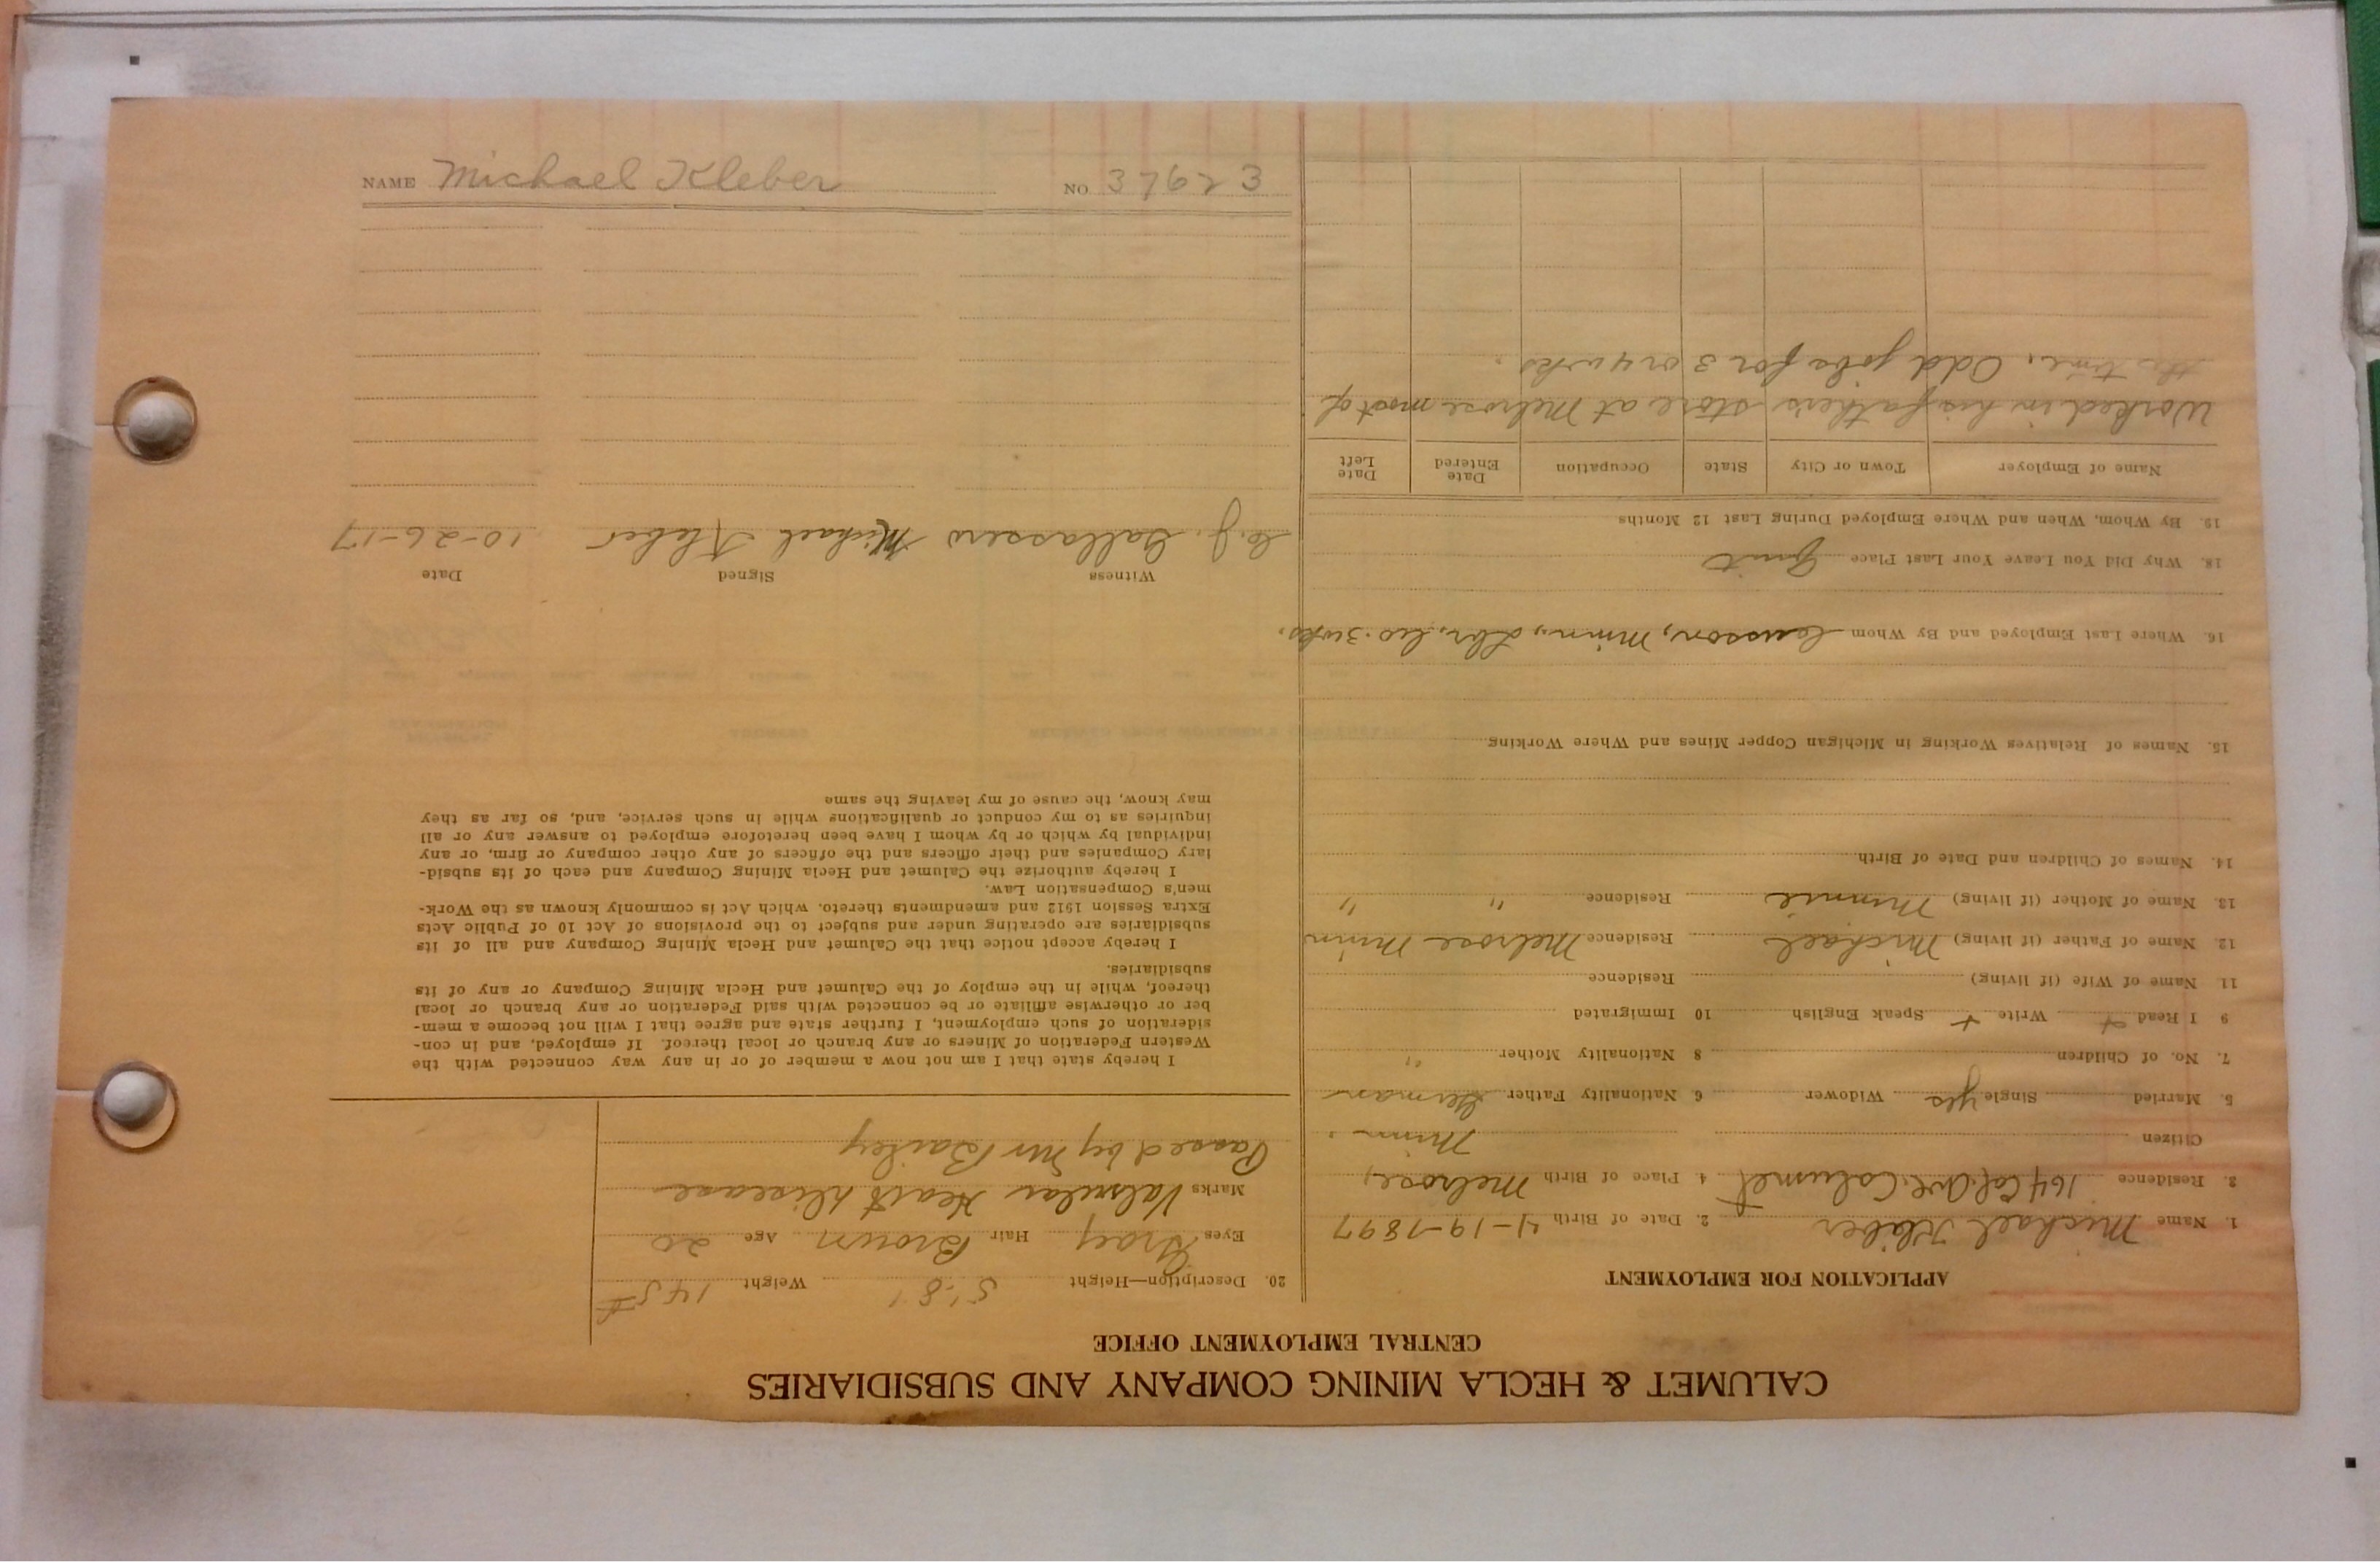 CALUMET & HECLA MINING COMPANY AND SUBSIDIARIES
CENTRAL EMPLOYMENT OFFICE
APPLICATION FOR EMPLOYMENT
1. Name Michael Klaber 2. Date of Birth 4-19-1897
3. Residence 164 Cal. Ave. Calumet 4 Place of Birth Melrose,
Citizen Minn.
5. Married Single yes Widower 6 Nationality Father German
7. No. of Children 8 Nationality Mother "
9 I Read + Write + Speak English 10 Immigrated
11. Name of Wife (if living) Residence
12. Name of Father (if living) Michael Residence Melrose Minn
13. Name of Mother (if living) Minnie Residence " "
14. Names of Children and Date of Birth
15. Names of Relatives Working in Michigan Copper Mines and Where Working
16. Where Last Employed and By Whom Minn., Co. 3 wks.
18. Why Did You Leave Your Last Place Quit
19. By Whom, When and Where Employed During Last 12 Months
Name of Employer Town or City State Occupation Date Entered Date Left
Worked in his father's store at Melrose most of
the time. Odd jobs for 3 or 4 wks.
20. Description—Height 5'.8" Weight 145#
Eyes Gray Hair Brown Age 20
Marks Valvular Heart Disease
Passed by Mr Bailey
I hereby state that I am not now a member of or in any way connected with the
Western Federation of Miners or any branch or local thereof. If employed, and in con-
sideration of such employment, I further state and agree that I will not become a mem-
ber or otherwise affiliate or be connected with said Federation or any branch or local
thereof, while in the employ of the Calumet and Hecla Mining Company or any of its
subsidiaries.
I hereby accept notice that the Calumet and Hecla Mining Company and all of its
subsidiaries are operating under and subject to the provisions of Act 10 of Public Acts
Extra Session 1912 and amendments thereto. which Act is commonly known as the Work-
men's Compensation Law.
I hereby authorize the Calumet and Hecla Mining Company and each of its subsid-
iary Companies and their officers and the officers of any other company or firm, or any
individual by which or by whom I have been heretofore employed to answer any or all
inquiries as to my conduct or qualifications while in such service, and, so far as they
may know, the cause of my leaving the same
Witness Signed Date
C.J. Michael Kleber 10-26-17
NAME Michael Kleber NO. 37623